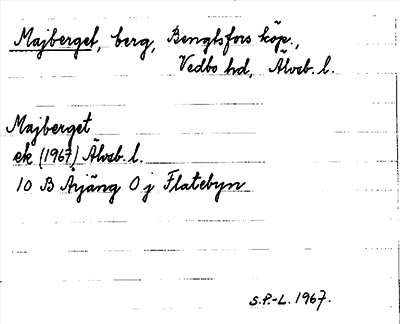 Majberget, berg, Bengtsfors köp.,
Vedbo hd, Älvsb. l.
Majberget
ek (1967) Älvsb. l.
10 B Årjäng 0 j Flatebyn
S.P.-L. 1967.